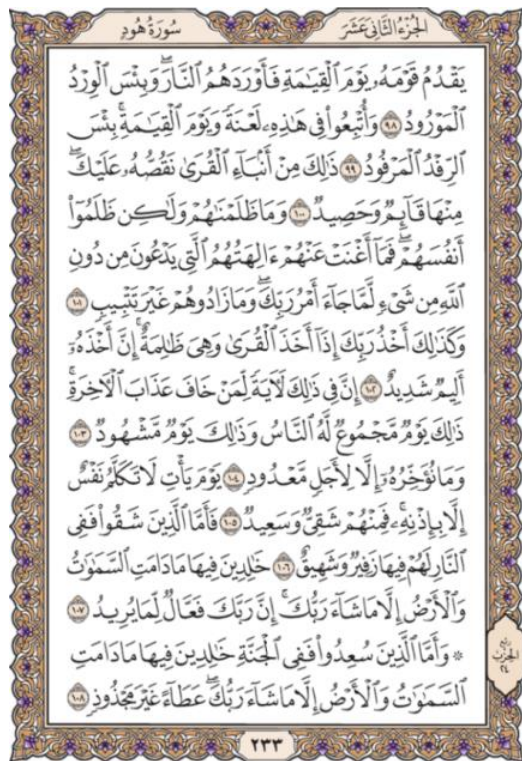 الجزء الثاني عشر
سورة هود
يَقْدُمُ قَوْمَهُۥ يَوْمَ ٱلْقِيَٰمَةِ فَأَوْرَدَهُمُ ٱلنَّارَۖ وَبِئْسَ ٱلْوِرْدُ
ٱلْمَوْرُودُ ٩٨ وَأُتْبِعُوا۟ فِى هَٰذِهِۦ لَعْنَةً وَيَوْمَ ٱلْقِيَٰمَةِۚ بِئْسَ
ٱلرِّفْدُ ٱلْمَرْفُودُ ٩٩ ذَٰلِكَ مِنْ أَنۢبَآءِ ٱلْقُرَىٰ نَقُصُّهُۥ عَلَيْكَۖ
مِنْهَا قَآئِمٌ وَحَصِيدٌ ١٠٠ وَمَا ظَلَمْنَٰهُمْ وَلَٰكِن ظَلَمُوٓا۟
أَنفُسَهُمْۖ فَمَآ أَغْنَتْ عَنْهُمْ ءَالِهَتُهُمُ ٱلَّتِى يَدْعُونَ مِن دُونِ
ٱللَّهِ مِن شَىْءٍ لَّمَّا جَآءَ أَمْرُ رَبِّكَۖ وَمَا زَادُوهُمْ غَيْرَ تَتْبِيبٍ ١٠١
وَكَذَٰلِكَ أَخْذُ رَبِّكَ إِذَآ أَخَذَ ٱلْقُرَىٰ وَهِىَ ظَٰلِمَةٌۚ إِنَّ أَخْذَهُۥٓ
أَلِيمٌ شَدِيدٌ ١٠٢ إِنَّ فِى ذَٰلِكَ لَءَايَةً لِّمَنْ خَافَ عَذَابَ ٱلْءَاخِرَةِۚ
ذَٰلِكَ يَوْمٌ مَّجْمُوعٌ لَّهُ ٱلنَّاسُ وَذَٰلِكَ يَوْمٌ مَّشْهُودٌ ١٠٣
وَمَا نُؤَخِّرُهُۥٓ إِلَّا لِأَجَلٍ مَّعْدُودٍ ١٠٤ يَوْمَ يَأْتِ لَا تَكَلَّمُ نَفْسٌ
إِلَّا بِإِذْنِهِۦۚ فَمِنْهُمْ شَقِىٌّ وَسَعِيدٌ ١٠٥ فَأَمَّا ٱلَّذِينَ شَقُوا۟ فَفِى
ٱلنَّارِ لَهُمْ فِيهَا زَفِيرٌ وَشَهِيقٌ ١٠٦ خَٰلِدِينَ فِيهَا مَا دَامَتِ ٱلسَّمَٰوَٰتُ
وَٱلْأَرْضُ إِلَّا مَا شَآءَ رَبُّكَۚ إِنَّ رَبَّكَ فَعَّالٌ لِّمَا يُرِيدُ ١٠٧
۞ وَأَمَّا ٱلَّذِينَ سُعِدُوا۟ فَفِى ٱلْجَنَّةِ خَٰلِدِينَ فِيهَا مَا دَامَتِ
ٱلسَّمَٰوَٰتُ وَٱلْأَرْضُ إِلَّا مَا شَآءَ رَبُّكَۖ عَطَآءً غَيْرَ مَجْذُوذٍ ١٠٨
ربع
الحزب
٢٤
٢٣٣